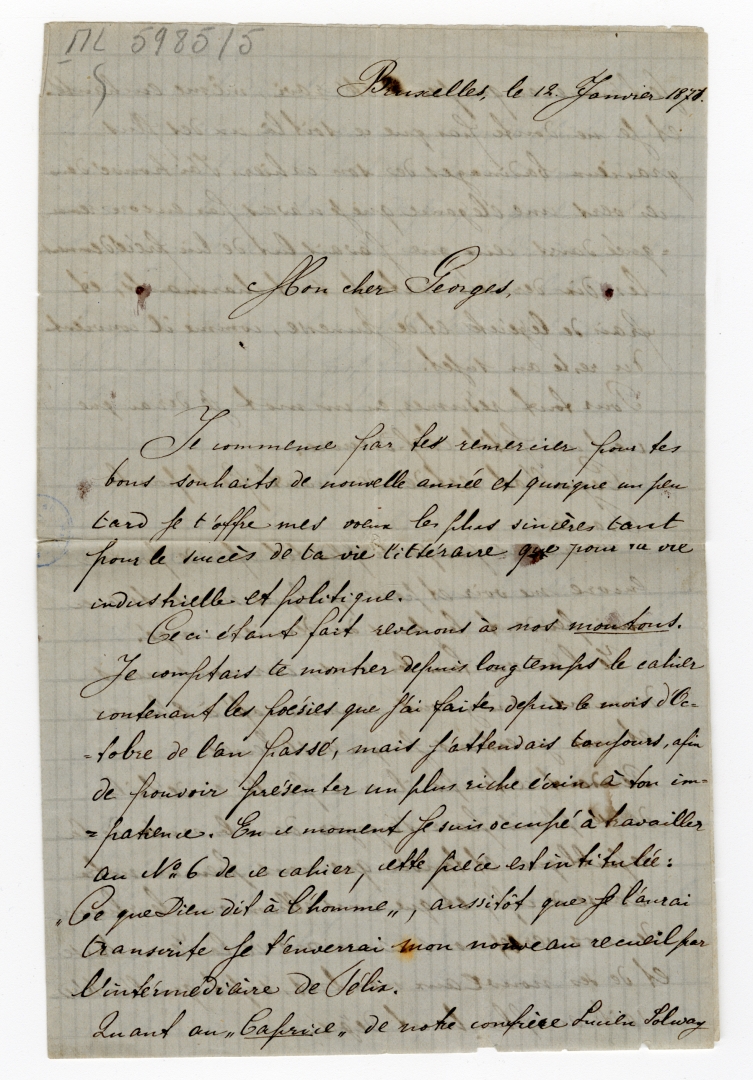 ML 5985/5
Bruxelles, le 12 Janvier 1878.
Mon cher Georges,
Je commence par tes remercier pour tes
bons souhaits de nouvelle année et quoique un peu
tard je t'offre mes voeux les plus sincères tant
pour le succès de ta vie littéraire que pour ta vie
industrielle et politique.
Ceci étant fait revenons à nos moutons.
Je comptais te montrer depuis longtemps le cahier
contenant les poésies que j'ai faites depuis le mois d'Oc-
-tobre de l'an passé, mais j'attendais toujours, afin
de pouvoir présenter un plus riche écrin à ton im-
=patience. En ce moment je suis occupé à travailler
au No 6 de ce cahier, cette pièce est intitulée:
„Ce que Dieu dit à l'homme„, aussitôt que je l'aurai
transcrite je t'enverrai mon nouveau recueil par
l'intermédiaire de Félix.
Quant au „Caprice„ de notre confrère Lucien Solvay